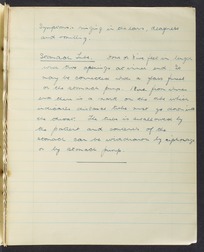 Symptoms ringing in the ears, deafness
and vomiting.
Stomach Tube. About 2 feet in longer
with two openings at inner end. It
may be connected when a glass funnel
or the stomach pump. 18 ins from inner
end there is a mark on the tube which
indicates distance tube must go down into
the stomach. The tube is swallowed by
the patient and contents of the
stomach can be withdrawn by siphonage
or by stomach pump.